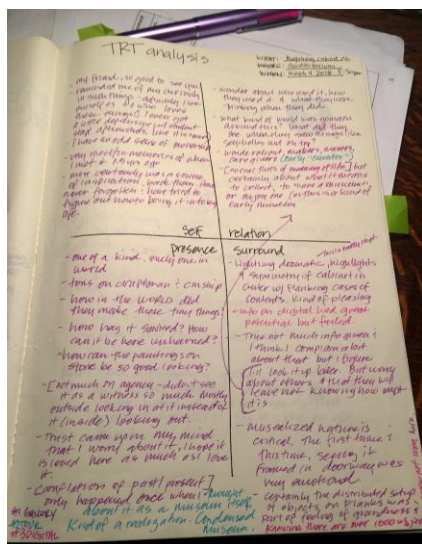 TRT analysis
WHAT:
WHERE:
WHEN: March 9 2018
my friend, so good to see you
- reminded me of my curiosity
in small things - actually I see
myself as one who loves
those things! I even got
a wee
afterwards, like it's mine
I have an odd sense of ownership
- very specific memories of when
I met it years ago
- most certainly was a source
of inspiration, made them, have
never forgotten; have tried to
figure out how to bring it into my
life.
- wonder about who used it, how
they used it & what they were
thinking when they did
- what kind of world was opened
around this? what did they
see when they saw things like
seashells
- words: reliquary, makers, memory,
caregivers (early "curator")
- [moral hints of vanity of life] but
certainly about what it means
to collect, to share a museum
or enjoy one (as this is a kind of
early museum)
SELF
relation
presence
surround
- one of a kind, only one in
world
- tons on craftsman/canship
- how in the world did
they make those tiny things!
- how has it survived? How
can it be here unharmed?
- how can the paintings on
stone be so good looking?
- [Not much on agency - didn't see
it as a witness so much mostly
outside looking in at it instead of
it (inside) looking out.
- Must came upon my mind
that I worry about it, I hope it
is loved here as much as I love
it.
- Conflation of past/present]
only happened once when I thought
about it as a museum itself
Kind of a realization - Condensed
Museum.
- Lighting dramatic, highlights
& symmetry of cabinet in
center w/ flanking cases of
contents. Kind of pleasing
- info on digital had great
potential but failed.
- True not much info given &
I think I complain a lot
about that but I figure
I'll look it up later. But worry
about others & that they will
leave not knowing how important
it is
- Musealized nature is
critical. The first time?
This time, seeing it
framed in doorway was
very emotional
- certainly the distributed setup
of objects on planks was
part of feeling of groundness &
knowing there are over 1000 objects
#1 GALLERY
#3 DIGITAL